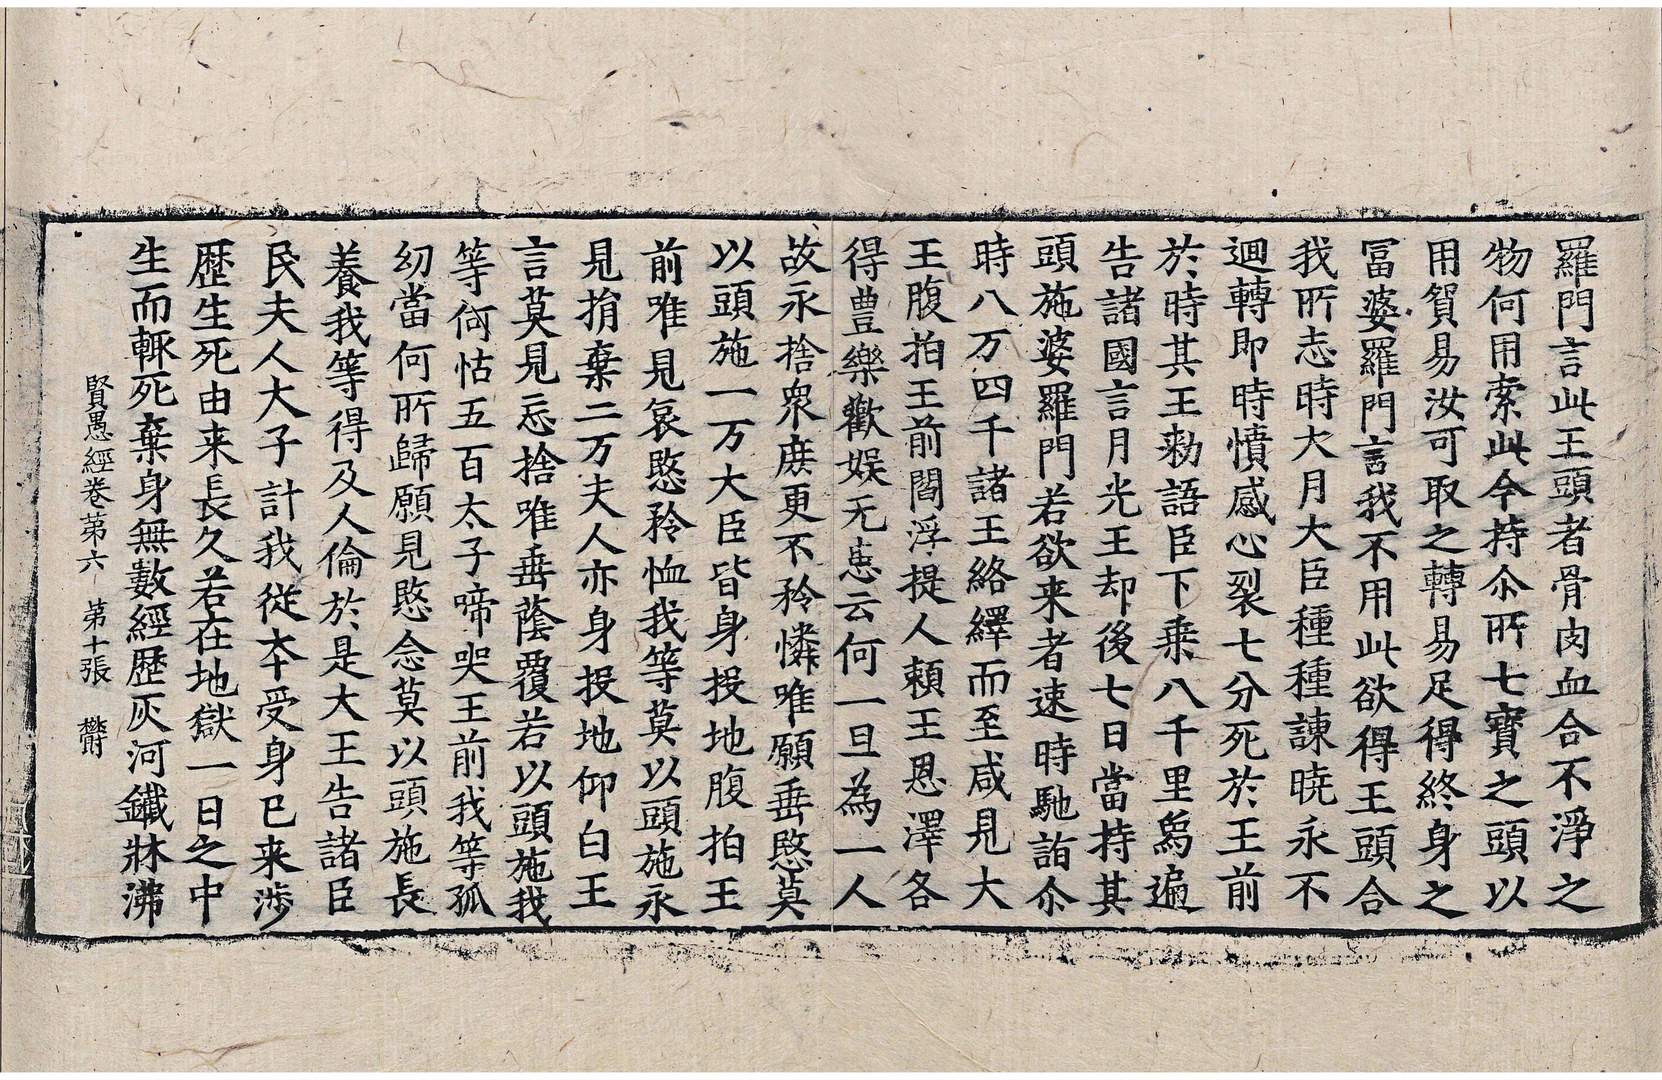 羅門言此王頭者骨肉血合不淨之
物何用索此今持尒所七寳之頭以
用貿易汝可取之轉易足得終身之
冨婆羅門言我不用此欲得王頭合
我所志時大月大臣種種諫曉永不
迴轉即時憤感心裂七分死於王前
於時其王勑語臣下乗八千里爲遍
告諸國言月光王却後七日當持其
頭施婆羅門若欲来者速時馳詣尒
時八万四千諸王絡繹而至咸見大
王腹拍王前閻浮提人頼王恩澤各
得豊樂歡娱无患云何一旦為一人
故永捨衆庶更不矜憐唯願垂愍莫
以頭施一万大臣皆身投地腹拍王
前唯見哀愍矜恤我等莫以頭施永
見捐棄二万夫人亦身投地仰白王
言莫見忘捨唯垂蔭覆若以頭施我
等何怙五百太子啼哭王前我等孤
幼當何所歸願見愍念莫以頭施長
養我等得及人倫於是大王告諸臣
民夫人大子計我従夲受身已来渉
歴生死由来長久若在地獄一日之中
生而輙死棄身無數經歴灰河鐵牀沸
賢愚經卷第六 第十張 欝